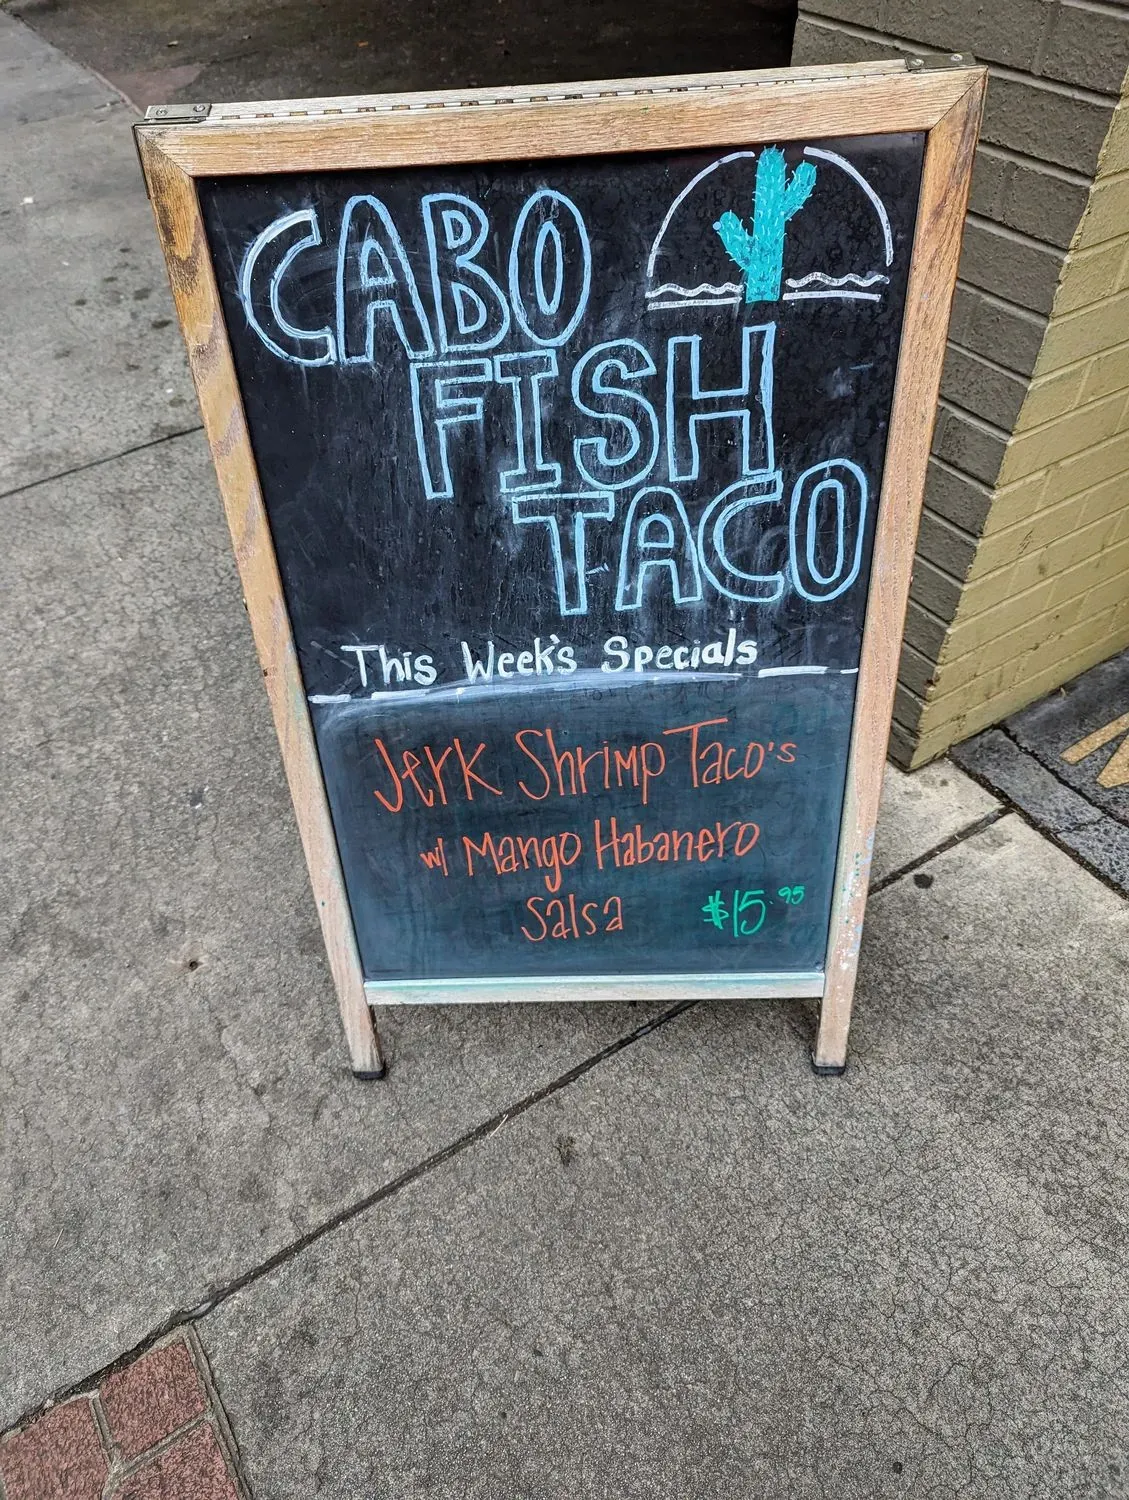 CABO
FISH
TACO
This Week's Specials
Jerk Shrimp Taco's
w/ Mango Habanero
Salsa $15.95